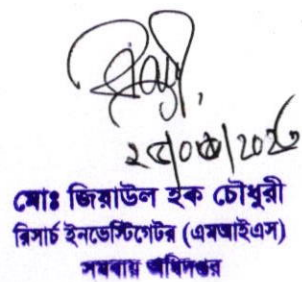 মোঃ জিয়াউল হক চৌধুরী
রিসার্চ ইনভেস্টিগেটর (এমআইএস)
সমবায় অধিদপ্তর